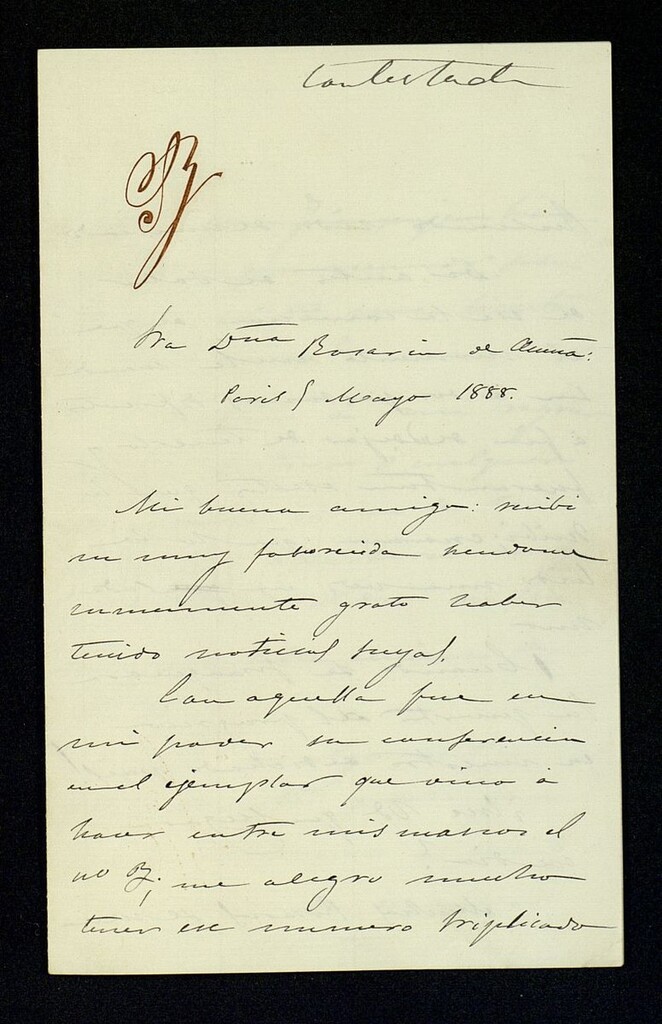 Contestada
Sra Dña Rosario de Acuña:
Paris 5 Mayo 1888.
Mi buena amiga: recibi
su muy faborecida siendome
inmensamente grato haber
tenido noticias suyas.
Con aquella fue en
mi poder su conferencia
en el ejemplar que vino á
hacer entre mis manos el
nº 3; me alegro mucho
tener ese numero triplicado